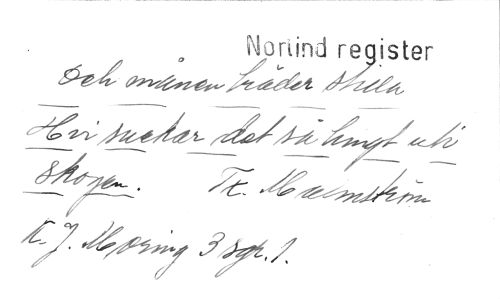 Norlind register
Och månen träder stilla
Hvi suckar det så tungt uti
skogen. Tx. Malmström
K. J. Moring 3 sgr. 1.